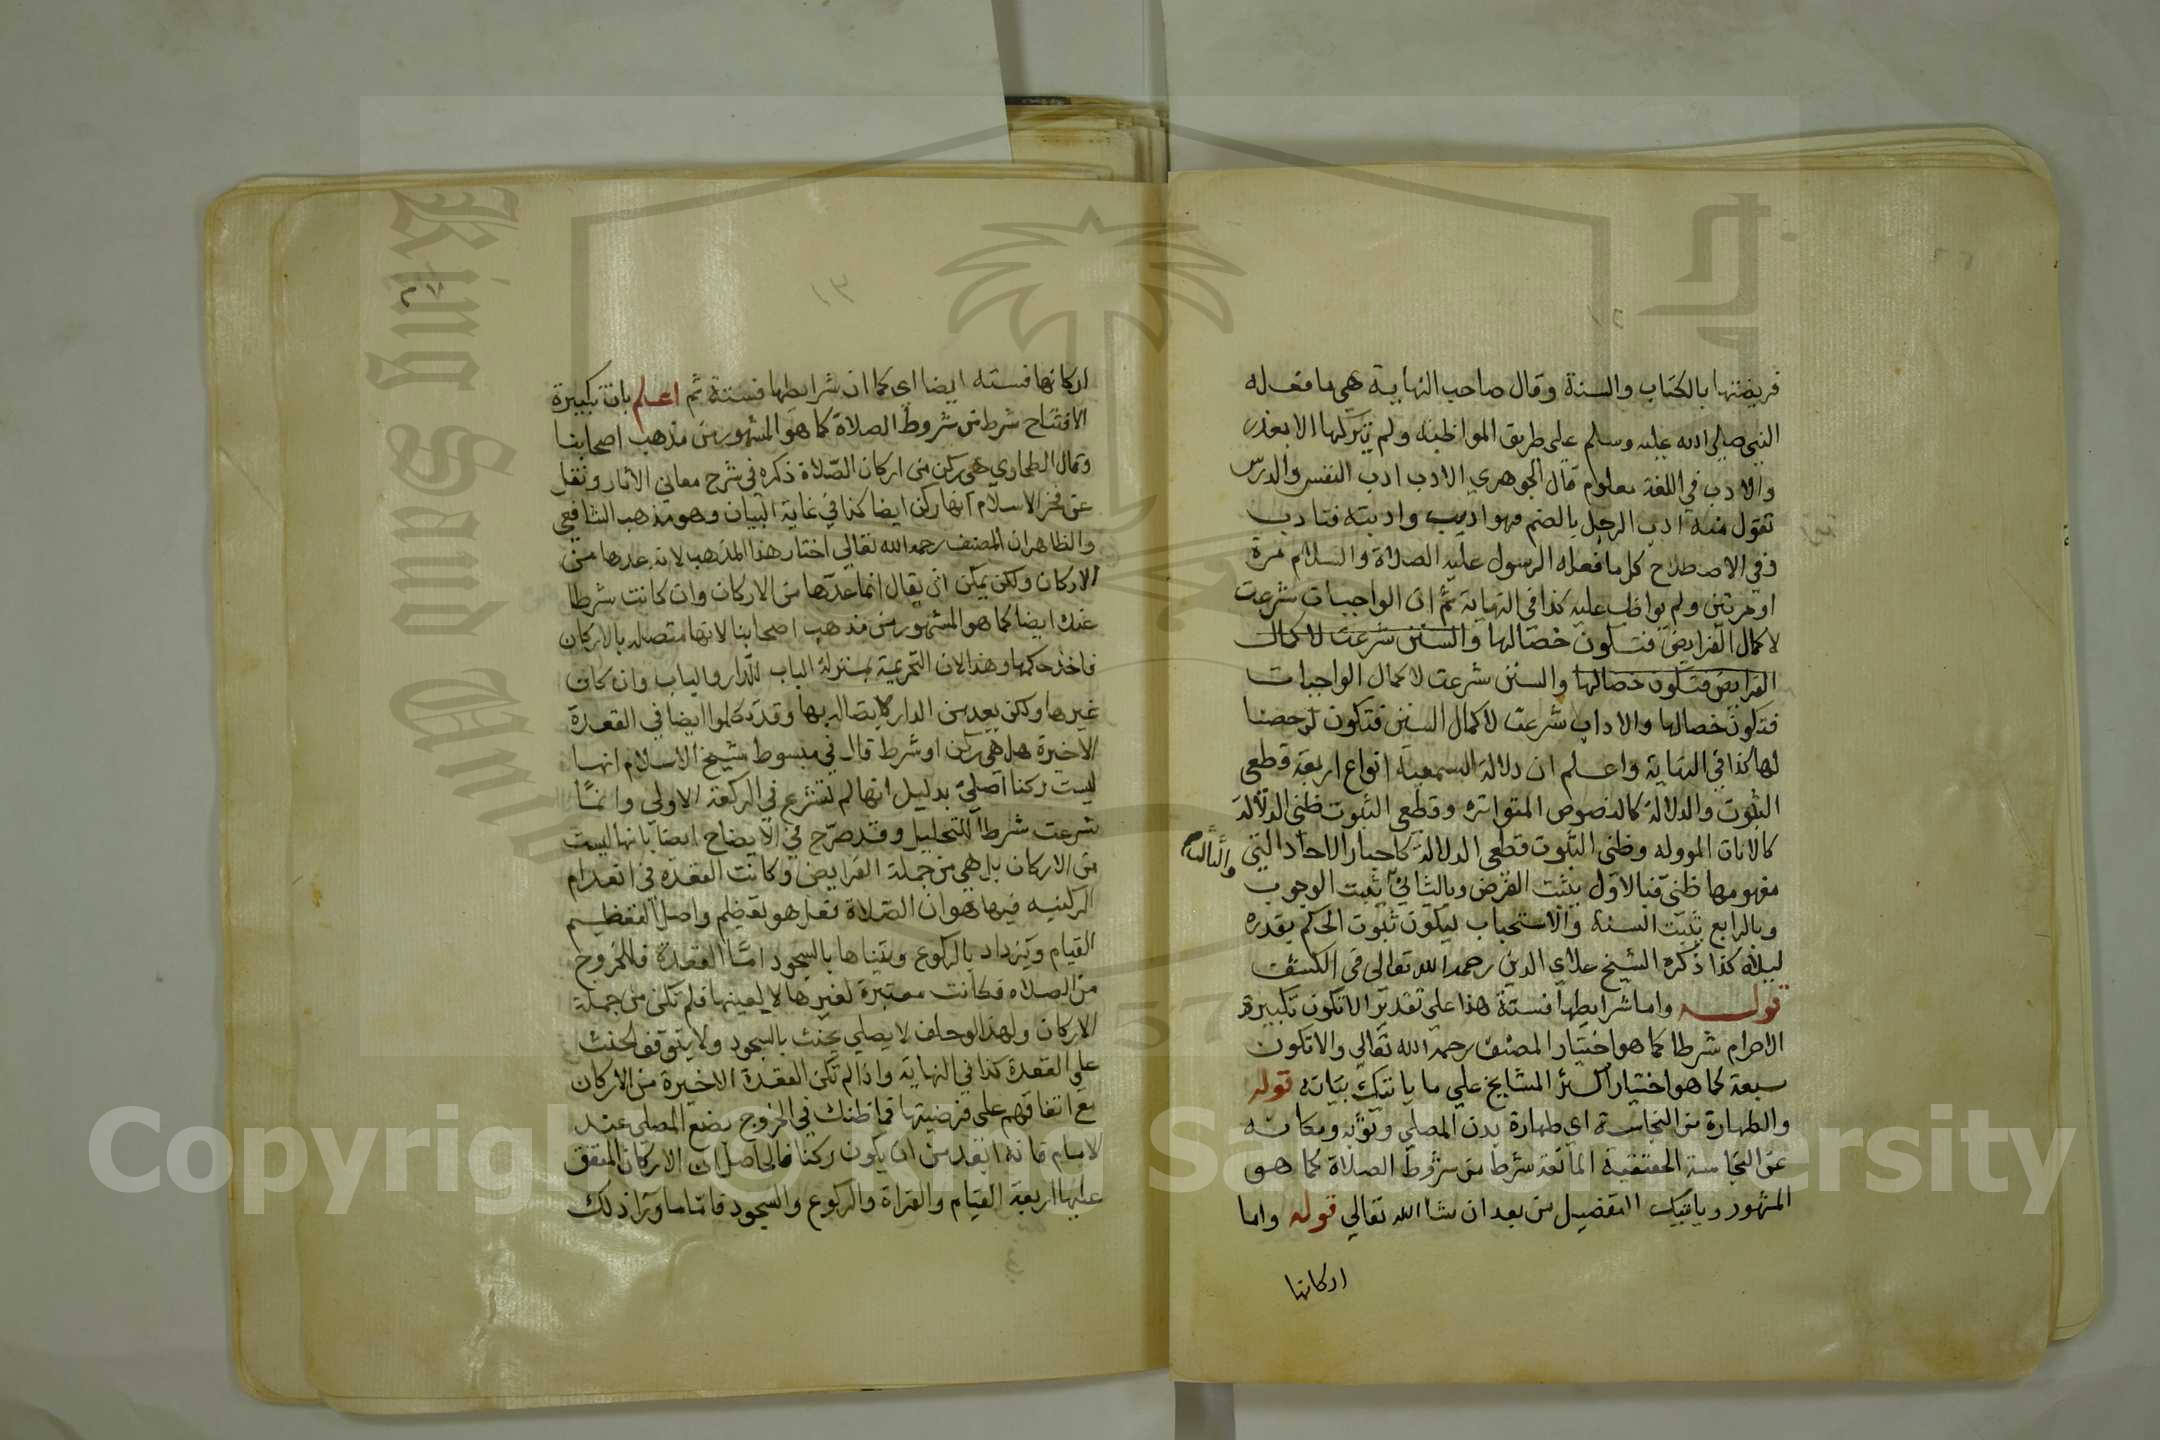 فريضتها بالكتاب والسنة وقال صاحب النهاية هي ما فعله
النبي صلى الله عليه وسلم على طريق المواظبة ولم يتركها الا بعذر
والادب في اللغة معلوم قال الجوهري الادب ادب النفس والدرس
تقول منه ادب الرجل بالضم فهو اديب وادبته فتادب
وفي الاصطلاح كل ما فعله الرسول عليه الصلاة والسلام مرة
او مرتين ولم يواظب عليه كذا في النهاية ثم ان الواجبات شرعت
لاكمال الفرايض فتكون خصالها والسنن شرعت لاكمال
الفرايض فتكون خصالها والسنن شرعت لاكمال الواجبات
فتكون خصالها والاداب شرعت لاكمال السنن فتكون
لها كذا في النهاية واعلم ان دلالة السمعية انواع اربعة قطعي
الثبوت والدلالة كالنصوص المتواتره وقطعي الثبوت ظني الدلالة
كالايات المووله وظني الثبوت قطعي الدلالة كاخبار الاحاد التي
مفهومها ظني فبالاول يثبت الفرض وبالثاني يثبت الوجوب
والثالث
وبالرابع يثبت السنة والاستحباب ليكون ثبوت الحكم بقدره
ليلاه كذا ذكره الشيخ علاي الدين رحمه الله تعالى في الكشف
قوله واما شرايطها فستة هذا على تقدير الا تكون تكبيرة
الاحرام شرطا كما هو اختيار المصنف رحمه الله تعالى والا تكون
سبعة كما هو اختيار اكثر المشايخ على ما ياتيك بيانه قوله
والطهارة من النجاسة اي طهارة بدن المصلي وثوبه ومكانه
عن النجاسة الحقيقية المانعة شرط من شروط الصلاة كما هو
المشهور وياتيك التفصيل من بعد ان شا الله تعالى قوله واما
اركانها
اركانها فسته ايضا اي كما ان شرايطها فستة ثم اعلم بان تكبيرة
الافتتاح شرط من شروط الصلاة كما هو المشهور من مذهب اصحابنا
وقال الطحاوي هي ركن من اركان الصلاة ذكره في شرح معاني الاثار ونقل
عن فخر الاسلام انها ركن ايضا كذا في غاية البيان وهو مذهب الشافعي
والظاهر ان المصنف رحمه الله تعالى اختار هذا المذهب لانه عدها من
الاركان ولكن يمكن ان يقال انما عدها من الاركان وان كانت شرطا
عنك ايضا كما هو المشهور من مذهب اصحابنا لانها متصله بالاركان
فاخذ حكمها وهذا لان التحريمة بمنزلة الباب للدار والباب وان كان
غيرها ولكن يعد من الدار لاتصاله بها وقد تكلموا ايضا في القعدة
الاخيرة هل هي ركن او شرط قال في مبسوط شيخ الاسلام انها
ليست ركنا اصلي بدليل انها لم تشرع في الركعة الاولى وانما
شرعت شرطا للتحليل وقد صرح في الايضاح ايضا بانها ليست
من الاركان بل هي من جملة الفرايض وكانت القعدة في انعدام
الركنيه فيها هو ان الصلاة فعل هو تعظيم واصل التعظيم
القيام ويزداد بالركوع ويتناها بالسجود اما القعدة فللخروج
من الصلاه فكانت معتبرة لغيرها لا لعينها فلم تكن من جملة
الاركان ولهذا لو حلف لا يصلي يحنث بالسجود ولا يتوقف الحنث
على القعدة كذا في النهاية واذا لم تكن القعدة الاخيرة من الاركان
مع اتفاقهم على فرضيتها فما ظنك في الخروج بصنع المصلي عند
الامام فانه ابعد من ان يكون ركنا فالحاصل ان الاركان المتفق
عليها اربعة القيام والقراة والركوع والسجود فاما ما ورا ذلك
Copyright © King Saud University
King Saud University
1957